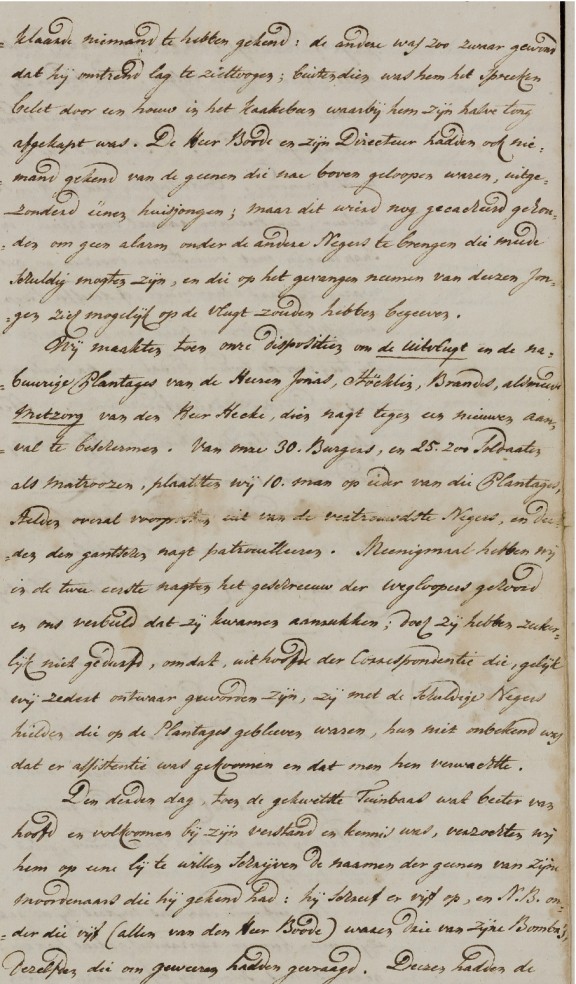 klaarde niemand te hebben gekend: de andere was zoo zwaar gewond
dat hij omtrend lag te zieltoogen; buitendien was hem het spreeken
belet door een houw in het kaakebeen waarbij hem zijn halve tong
afgekapt was. De Heer Boode en zijn Directeur hadden ook nie-
mand gekend van de geenen die nae boven geloopen waren, uitge-
zonderd eenen huisjongen; maar dit wierd nog gecacheerd gehou-
-den om geen alarm onder de andere Negers te brengen die meede
schuldig mogten zijn, en die op het gevangen neemen van deezen jon-
-gen zich mogelijk op de vlugt zouden hebben begeeven.
Wij maakten toen onze dispositien om de Uitvlugt en de na-
-buurige Plantages van de Heeren Jonas, Stöcklin, Brandes, alsmeede
Metzorg van den Heer Hecke, dien nagt tegen een nieuwen aan-
val te beschermen. Van onze 30. Burgers, en 25. zoo Soldaaten
als matroozen, plaatsten wij 10. man op ieder van die Plantages,
stelden overal voorposten uit van de vertrouwdste Negers, en dee-
-den den gantschen nagt patrouilleeren. Meenigmaal hebben wij
in de twee eerste nagten het geschreeuw der wegloopers gehoord
en ons verbeeld dat zij kwamen aanrukken; doch zij hebben zeeker-
lijk niet gedurfd, omdat, uit hoofde der Correspondentie die, gelijk
wij zedert ontwaar geworden zijn, zij met de schuldige Negers
hielden die op de Plantages gebleeven waaren, hun niet onbekend was
dat er assistentie was gekoomen en dat men hen verwachtte.
Den derden dag, toen de gekwetste Tuinbaas wat beeter van
hoofd en volkoomen bij zijn verstand en kennis was, verzochten wij
hem op eene lij te willen schrijven de naamen der geenen van zijne
moordenaars die hij gekend had: hij schreef er vijf op, en N.B. on-
-der die vijf (allen van den Heer Boode) waaren drie van zijne Bomba's,
dezelfden die om geweeren hadden gevraagd. Deezen hadden de